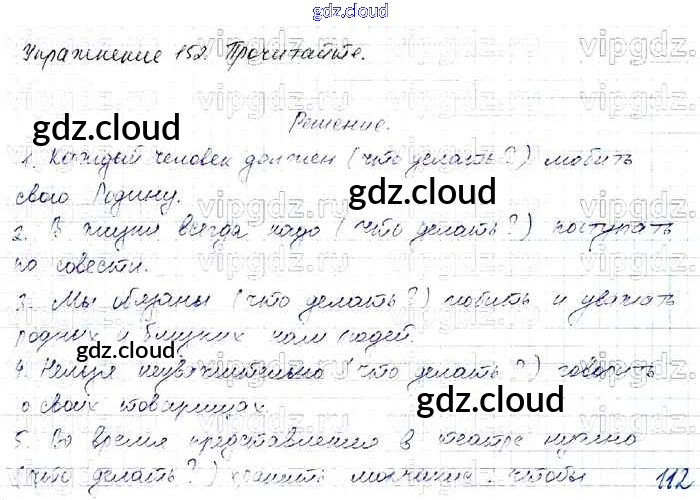 gdz.cloud
Упражнение 152. Прочитайте.
vipgdz.
gdz.cloud
Решение.
1. Каждый человек должен (что делать?) любить
свою Родину.
gdz.cloud
2. В жизни всегда надо (что делать?) поступать
по совести.
3. Мы обязаны (что делать?) любить и уважать
родных и близких нам людей.
gdz.cloud
4. Нельзя неуважительно (что делать?) говорить
о своих товарищах.
gdz.cloud
5. Во время представления в театре нужно
(что делать?) хранить молчание, чтобы
112